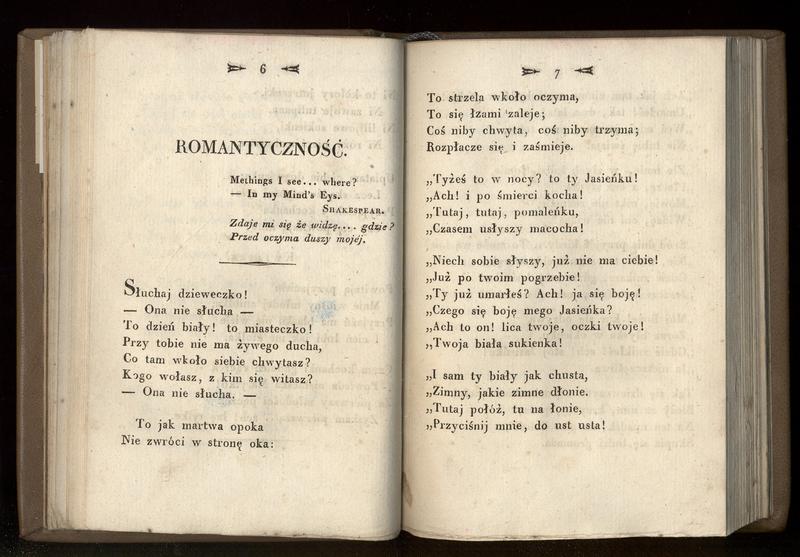 6
ROMANTYCZNOŚĆ.
Methings I see... where?
— In my Mind's Eys.
SHAKESPEAR.
Zdaje mi się że widzę.... gdzie?
Przed oczyma duszy mojéj.
Słuchaj dzieweczko!
— Ona nie słucha —
To dzień biały! to miasteczko!
Przy tobie nie ma żywego ducha,
Co tam wkoło siebie chwytasz?
Kogo wołasz, z kim się witasz?
— Ona nie słucha. —
To jak martwa opoka
Nie zwróci w stronę oka:
7
To strzela wkoło oczyma,
To się łzami zaleje;
Coś niby chwyta, coś niby trzyma;
Rozpłacze się i zaśmieje.
„Tyżeś to w nocy? to ty Jasieńku!
„Ach! i po śmierci kocha!
„Tutaj, tutaj, pomaleńku,
„Czasem usłyszy macocha!
„Niech sobie słyszy, już nie ma ciebie!
„Już po twoim pogrzebie!
„Ty już umarłeś? Ach! ja się boję!
„Czego się boję mego Jasieńka?
„Ach to on! lica twoje, oczki twoje!
„Twoja biała sukienka!
„I sam ty biały jak chusta,
„Zimny, jakie zimne dłonie.
„Tutaj połóż, tu na łonie,
„Przyciśnij mnie, do ust usta!